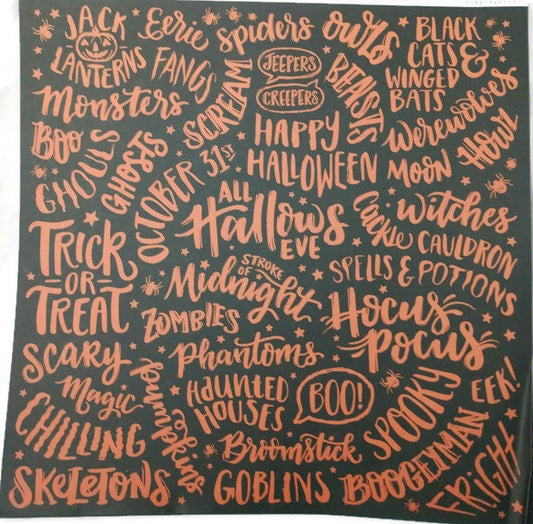 JACK
LANTERNS
Eerie
Spiders
OWLS
BLACK
CATS &
WINGED
BATS
FANGS
JEEPERS
CREEPERS
BEASTS
Monsters
SCREAM
Werewolves
HOWL
BOO
GHOULS
GHOSTS
OCTOBER 31ST
HAPPY
HALLOWEEN
MOON
ALL
Hallows
EVE
Witches
Cackle
CAULDRON
SPELLS & POTIONS
TRICK
-OR-
TREAT
STROKE
OF
Midnight
ZOMBIES
HOCUS
POCUS
SCARY
Magic
Phantoms
HAUNTED
HOUSES
BOO!
SPOOKY
EEK!
CHILLING
pumpkins
Broomstick
SKELETONS
GOBLINS
BOOGEYMAN
FRIGHT